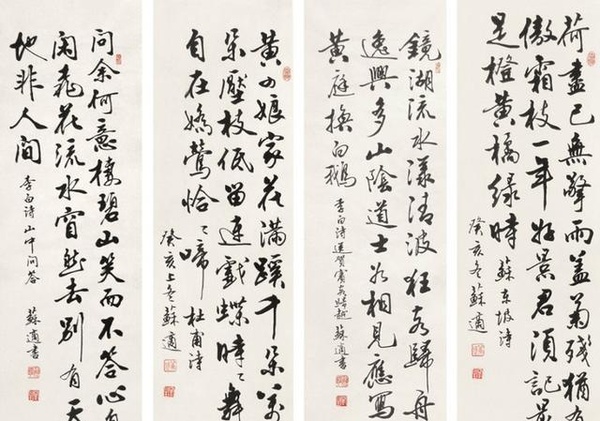 荷盡已無擎雨蓋菊殘猶有
傲霜枝一年好景君須記最
是橙黃橘綠時 蘇東坡詩
癸亥冬蘇適
鏡湖流水漾清波狂客歸舟
逸興多山陰道士如相見應寫
黃庭換白鵝 李白詩送賀賓客歸越 蘇適書
黃四娘家花滿蹊千朵萬
朵壓枝低留連戲蝶時〻舞
自在嬌鶯恰〻啼 杜甫詩
癸亥上冬蘇適
問余何意棲碧山笑而不答心自
閑飛花流水窅然去別有天
地非人間 李白詩山中問答 蘇適書